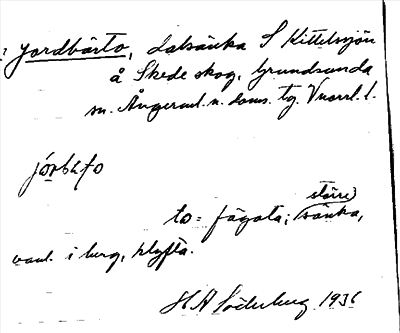 Jordbärto, dalsänka S Kittelsjön
å Skede skog, Grundsunda
sn. Ångerml. n. doms. tg. Vnorrl. l.
to = fågata; större sänka,
vanl. i berg, klyfta.
H A Söderberg 1936